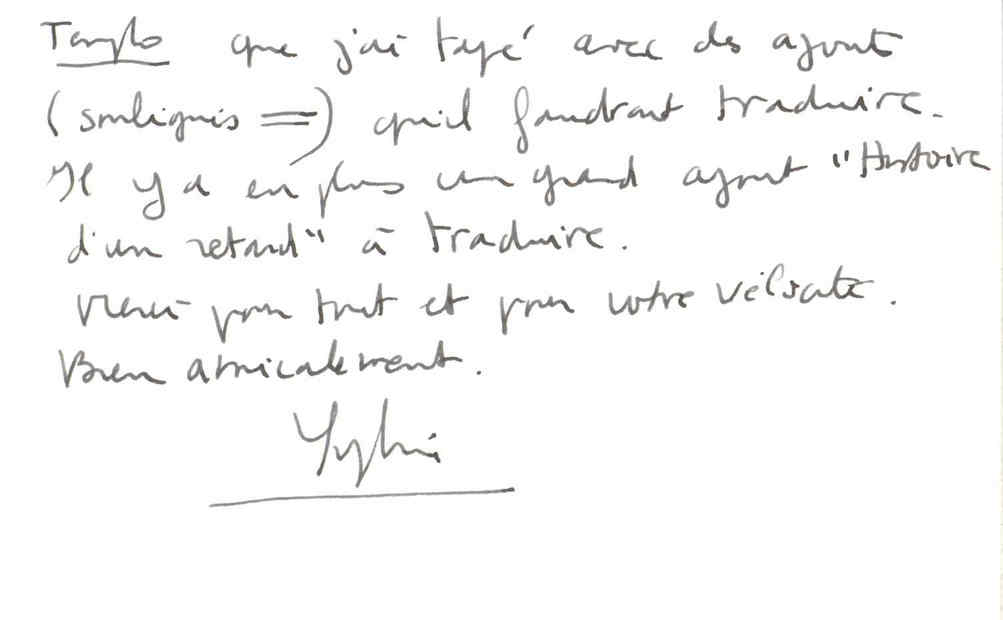 que j'ai tapé avec des ajout
(soulignés =) qu'il faudrait traduire.
Il y a en plus un grand ajout "Histoire
d'un retard" à traduire.
Merci pour tout et pour votre
Bien amicalement.
Sylvie